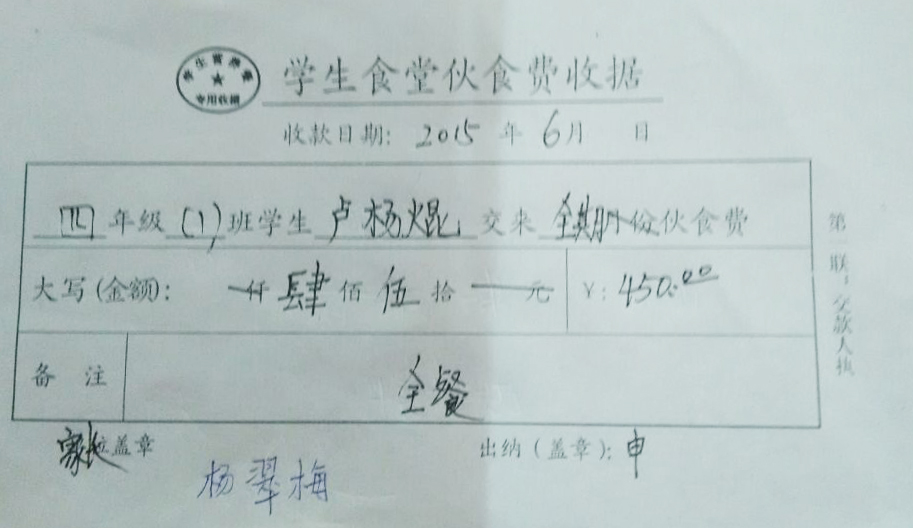 专用收据
学生食堂伙食费收据
收款日期: 2015 年 6月 日
四 年级 (1) 班学生 卢杨焜 交来 全期 份伙食费
大写(金额): 仟 肆 佰 伍 拾 元 ¥: 450.00
备 注 全餐
家长 盖章 出纳(盖章): 申
杨翠梅
第一联:交款人执